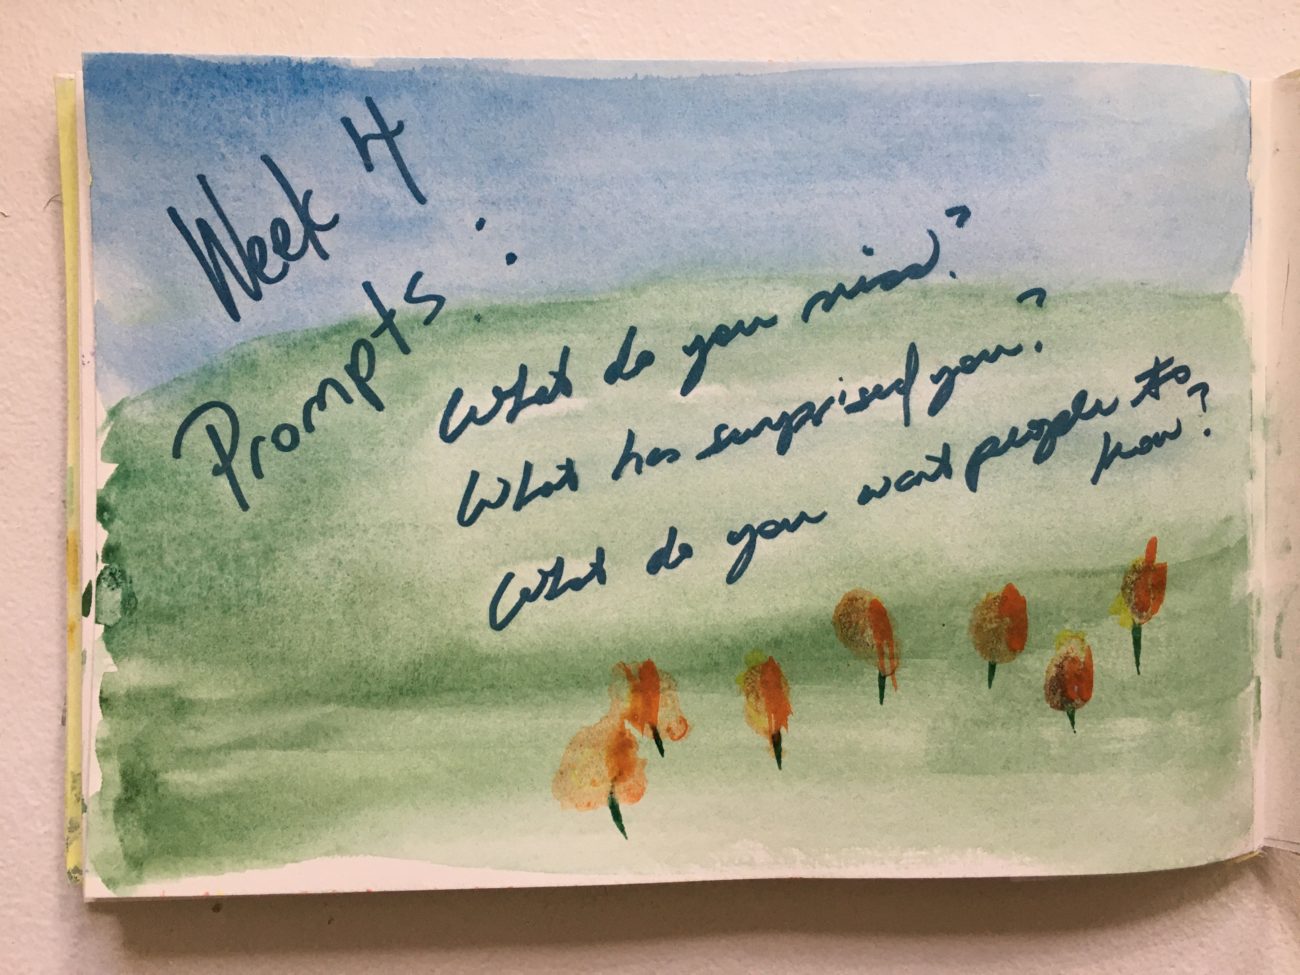 Week 4
Prompts:
What do you miss?
What has surprised you?
What do you want people to
know?